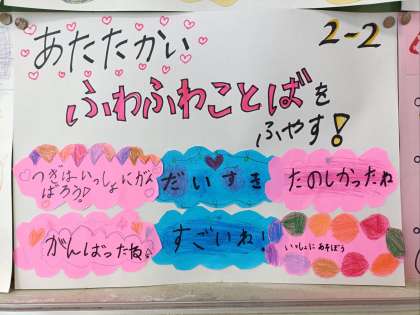 あたたかい
2-2
ふわふわことばを
ふやす！
つぎはいっしょにがん
ばろう！
だいすき
たのしかったね
がんばったね
すごいね！
いっしょにあそぼう